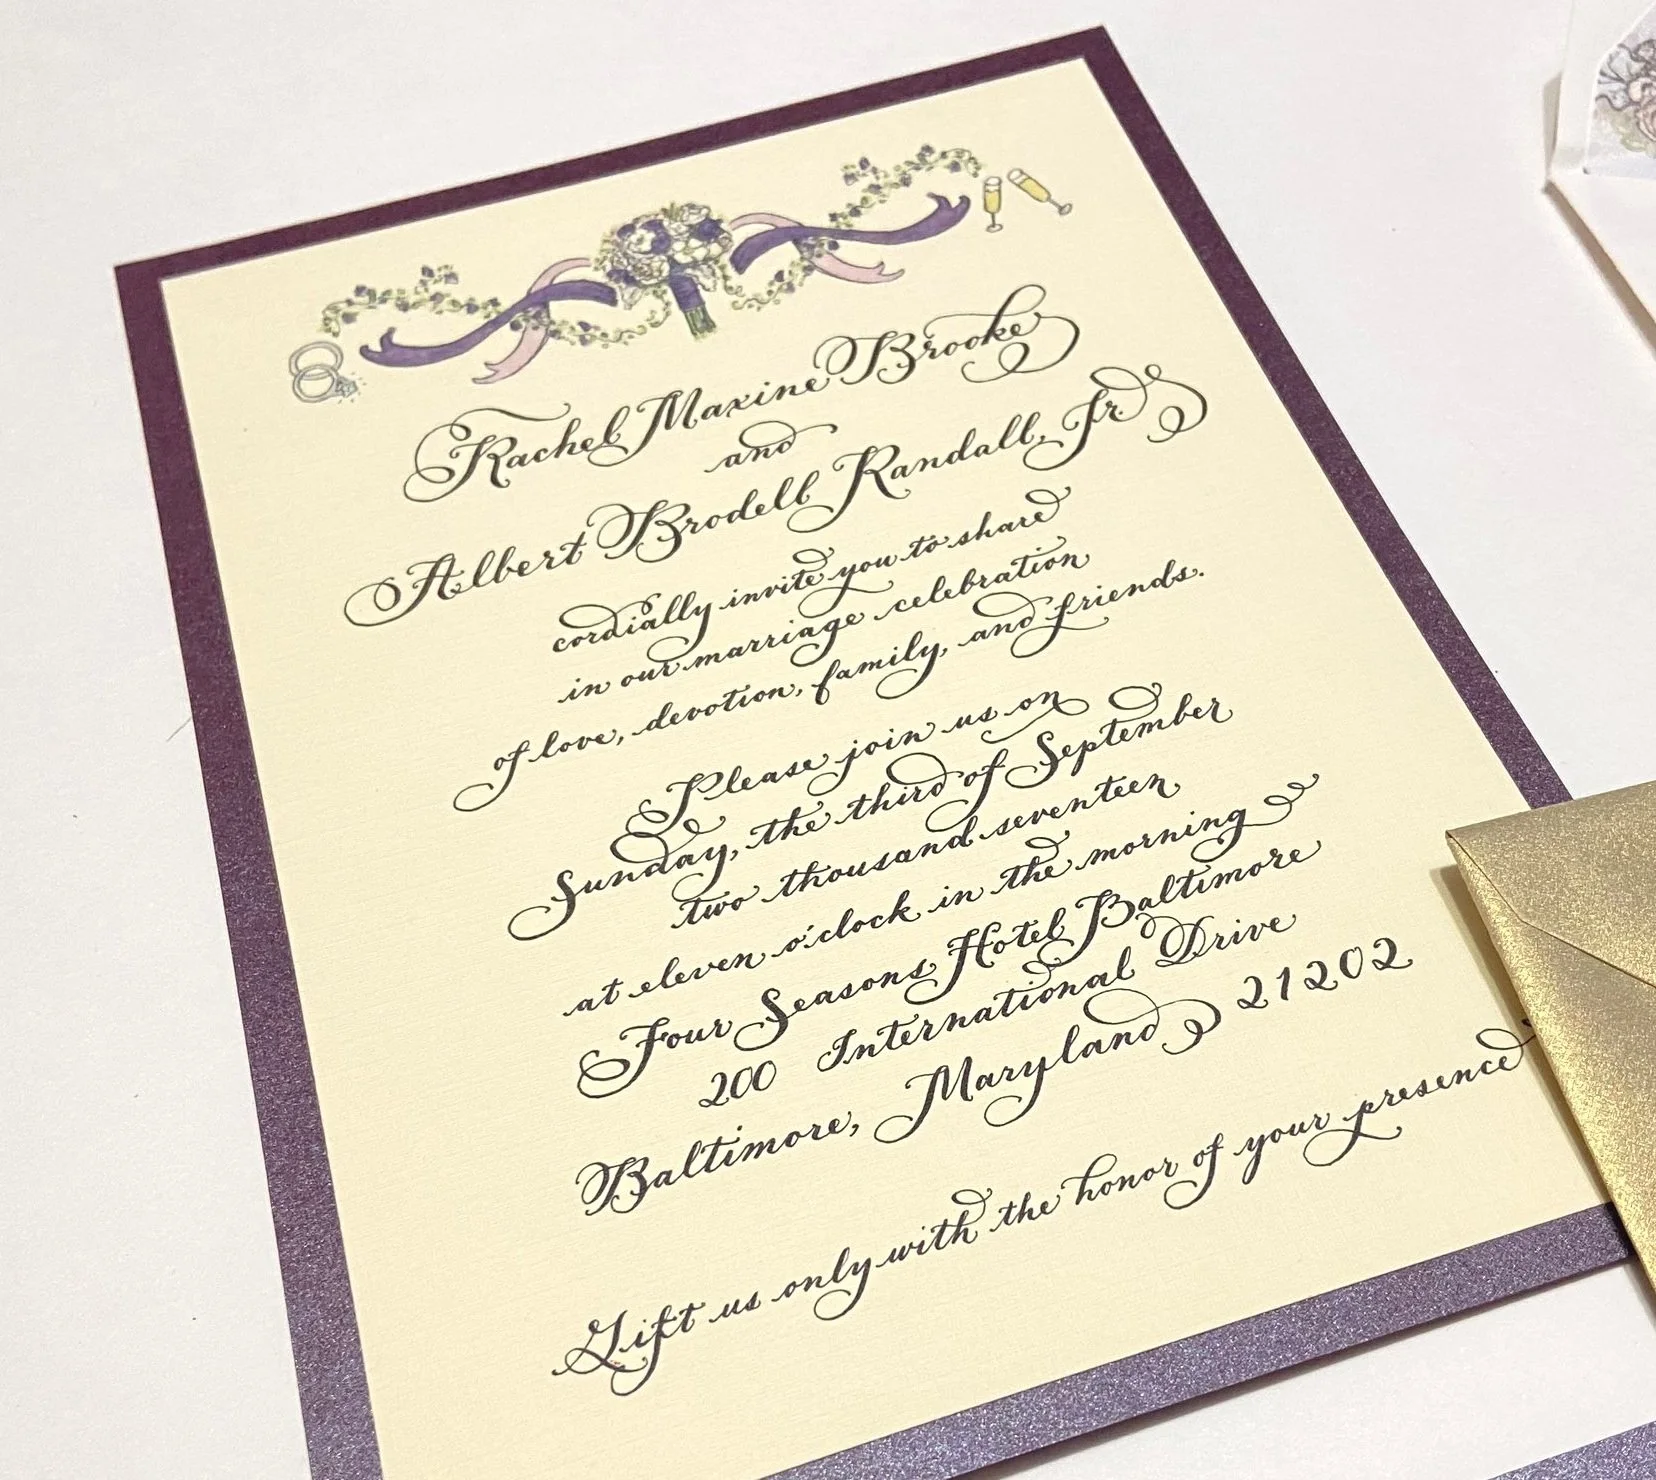 Rachel Maxine Brooke
and
Albert Brodell Randall, Jr.
cordially invite you to share
in our marriage celebration
of love, devotion, family, and friends.
Please join us on
Sunday, the third of September
two thousand seventeen
at eleven o'clock in the morning
Four Seasons Hotel Baltimore
200 International Drive
Baltimore, Maryland 21202
Gift us only with the honor of your presence